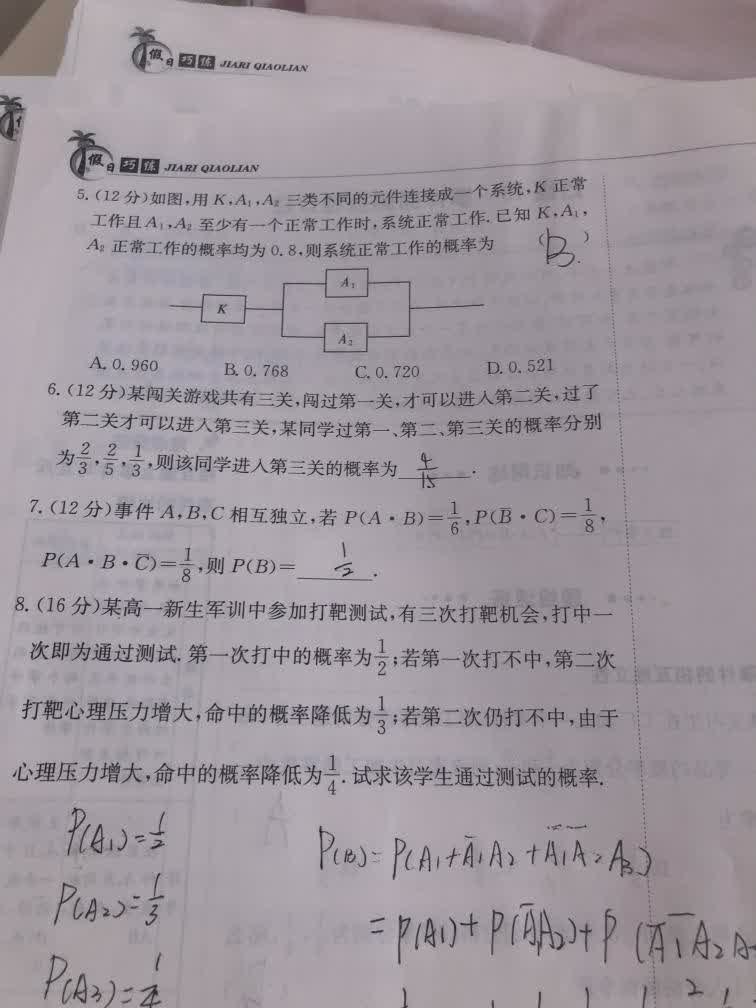 假日巧练 JIARI QIAOLIAN
假日巧练 JIARI QIAOLIAN
5. (12 分)如图,用 K,A₁,A₂ 三类不同的元件连接成一个系统,K 正常
工作且 A₁,A₂ 至少有一个正常工作时,系统正常工作. 已知 K,A₁,
A₂ 正常工作的概率均为 0.8,则系统正常工作的概率为 ( B. )
A₁
K
A₂
A. 0.960 B. 0.768 C. 0.720 D. 0.521
6. (12 分)某闯关游戏共有三关,闯过第一关,才可以进入第二关,过了
第二关才可以进入第三关,某同学过第一、第二、第三关的概率分别
为 2/3, 2/5, 1/3,则该同学进入第三关的概率为 4/15 .
7. (12 分)事件 A,B,C 相互独立,若 P(A·B)=1/6,P(B̅·C)=1/8,
P(A·B·C̅)=1/8,则 P(B)= 1/2 .
8. (16 分)某高一新生军训中参加打靶测试,有三次打靶机会,打中一
次即为通过测试. 第一次打中的概率为 1/2;若第一次打不中,第二次
打靶心理压力增大,命中的概率降低为 1/3;若第二次仍打不中,由于
心理压力增大,命中的概率降低为 1/4. 试求该学生通过测试的概率.
P(A₁)=1/2 P(B)=P(A₁+A̅₁A₂+A̅₁A̅₂A₃)
P(A₂)=1/3 =P(A₁)+P(A̅₁A₂)+P(A̅₁A̅₂A
P(A₃)=1/4